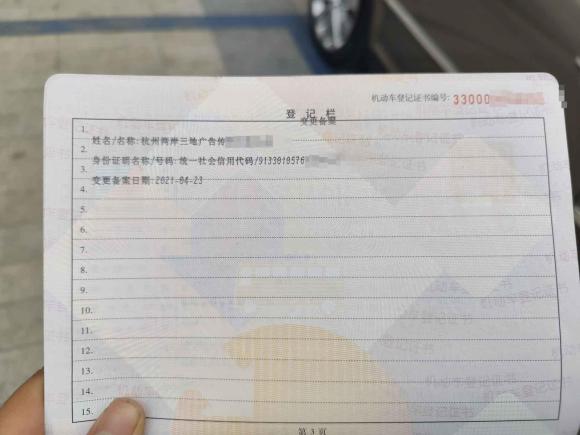 机动车登记证书编号: 33000
登 记 栏
变更备案
1.
2. 姓名/名称: 杭州两岸三地广告传
3. 身份证明名称/号码: 统一社会信用代码/9133010576
4. 变更备案日期: 2021-04-23
5.
6.
7.
8.
9.
10.
11.
12.
13.
14.
15.
第 3 页